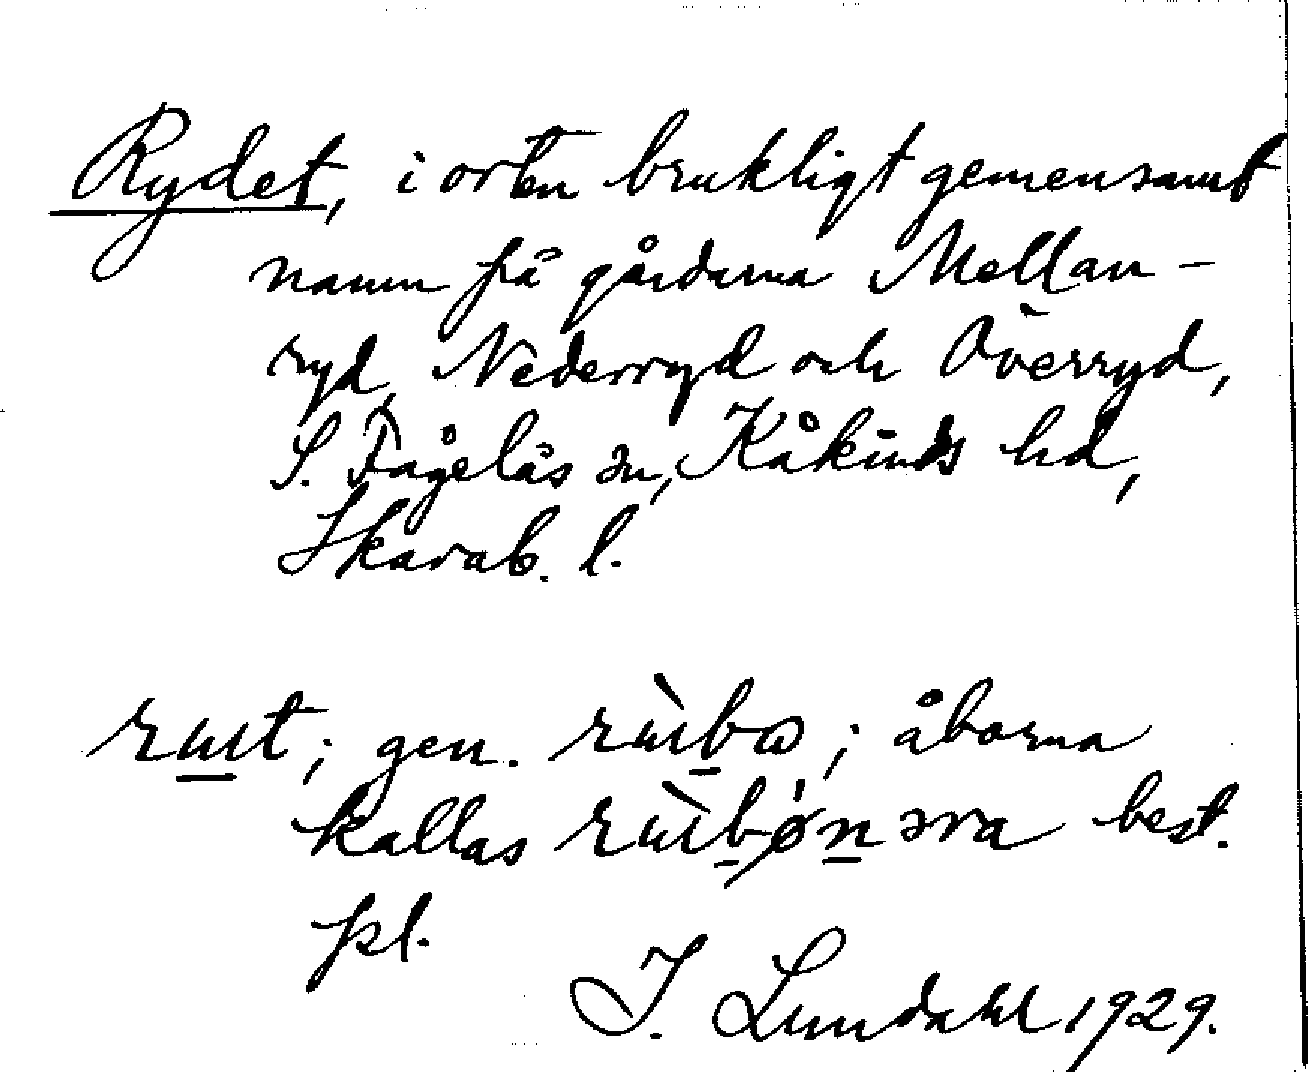 Rydet, i orten brukligt gemensamt
namn på gårdarna Mellan-
ryd, Nederryd och Överryd,
S. Fågelås sn, Kåkinds hd,
Skarab. l.
; gen. ; åborna
kallas best.
pl.
I. Lundahl 1929.